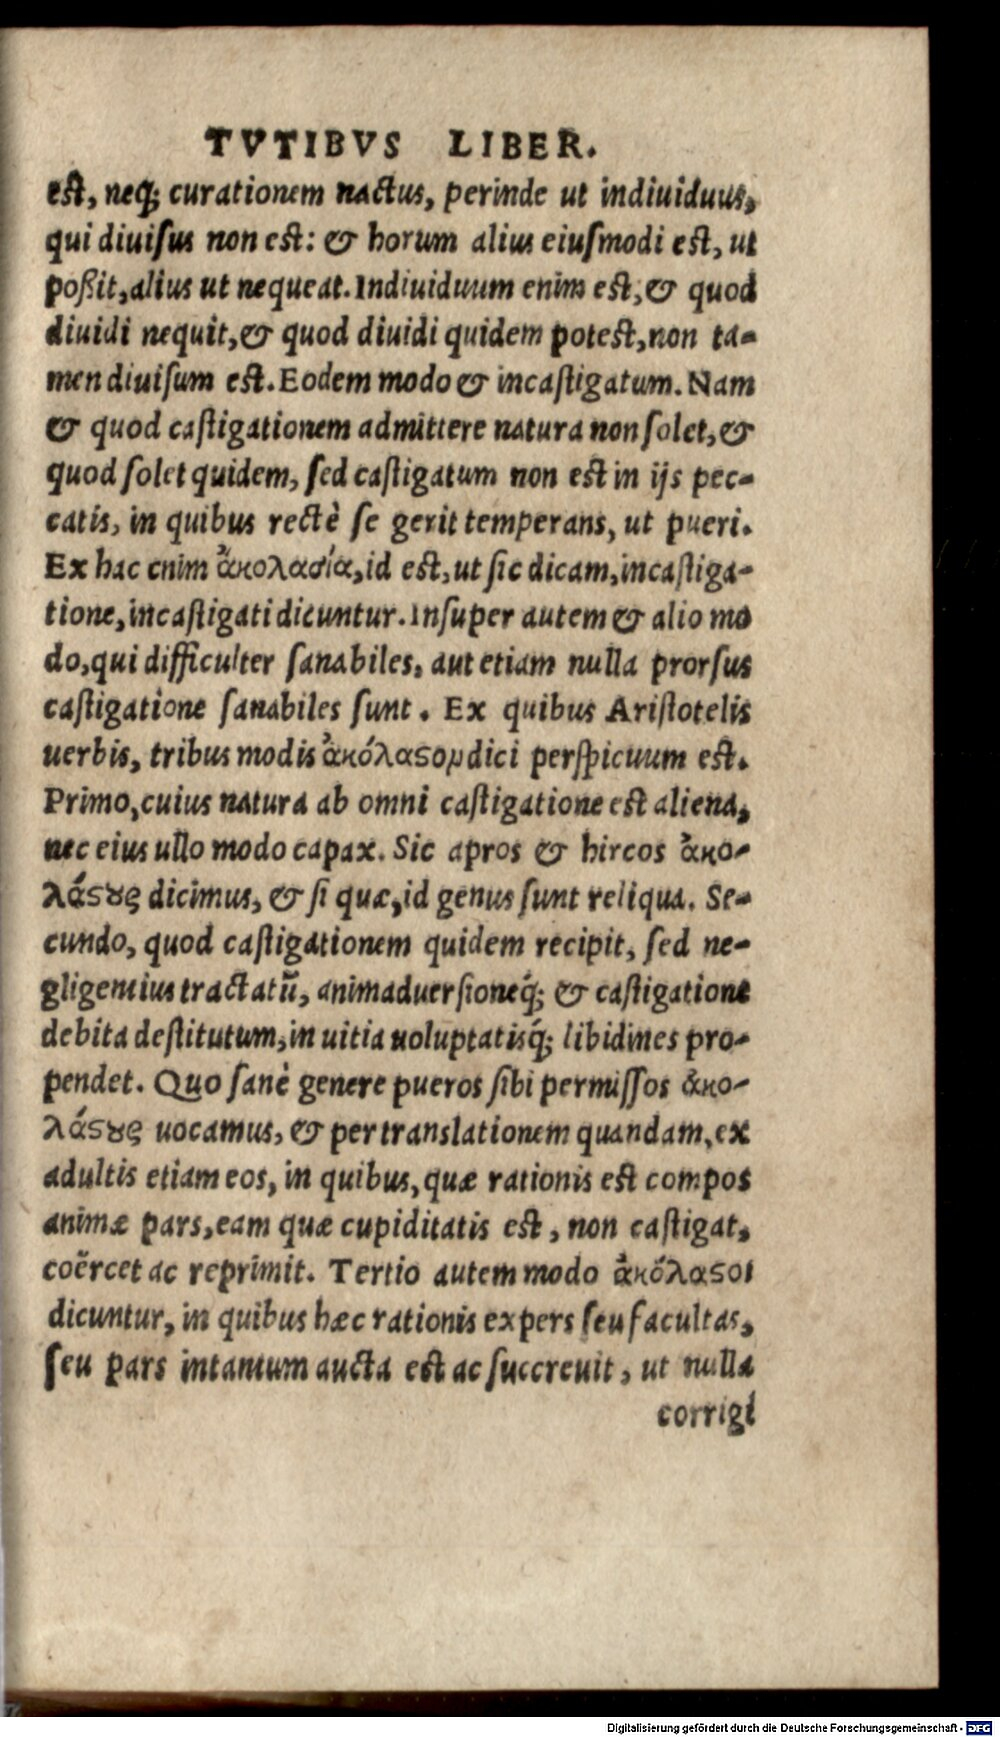 TVTIBVS LIBER.
est, neq; curationem nactus, perinde ut indiuiduus,
qui diuiſus non est: & horum alius eiuſmodi est, ut
poßit, alius ut nequeat. Indiuiduum enim est, & quod
diuidi nequit, & quod diuidi quidem potest, non ta-
men diuiſum est. Eodem modo & incaſtigatum. Nam
& quod caſtigationem admittere natura non ſolet, &
quod ſolet quidem, ſed caſtigatum non est in ijs pec-
catis, in quibus rectè ſe gerit temperans, ut pueri.
Ex hac enim ἀκολασία, id est, ut ſic dicam, incaſtiga-
tione, incaſtigati dicuntur. Inſuper autem & alio mo
do, qui difficulter ſanabiles, aut etiam nulla prorſus
caſtigatione ſanabiles ſunt. Ex quibus Ariſtotelis
uerbis, tribus modis ἀκόλαϛομ dici perſpicuum est.
Primo, cuius natura ab omni caſtigatione est aliena,
nec eius ullo modo capax. Sic apros & hircos ἀκο-
λάϛȣς dicimus, & ſi quæ, id genus ſunt reliqua. Se-
cundo, quod caſtigationem quidem recipit, ſed ne-
gligentius tractatũ, animaduerſioneq́; & caſtigatione
debita deſtitutum, in uitia uoluptatisq́; libidines pro-
pendet. Quo ſanè genere pueros ſibi permiſſos ἀκο-
λάϛȣς uocamus, & per translationem quandam, ex
adultis etiam eos, in quibus, quæ rationis est compos
animæ pars, eam quæ cupiditatis est, non caſtigat,
coërcet ac reprimit. Tertio autem modo ἀκόλαϛοι
dicuntur, in quibus hæc rationis expers ſeu facultas,
ſeu pars intantum aucta est ac ſuccreuit, ut nulla
corrigi
Digitalisierung gefördert durch die Deutsche Forschungsgemeinschaft - DFG